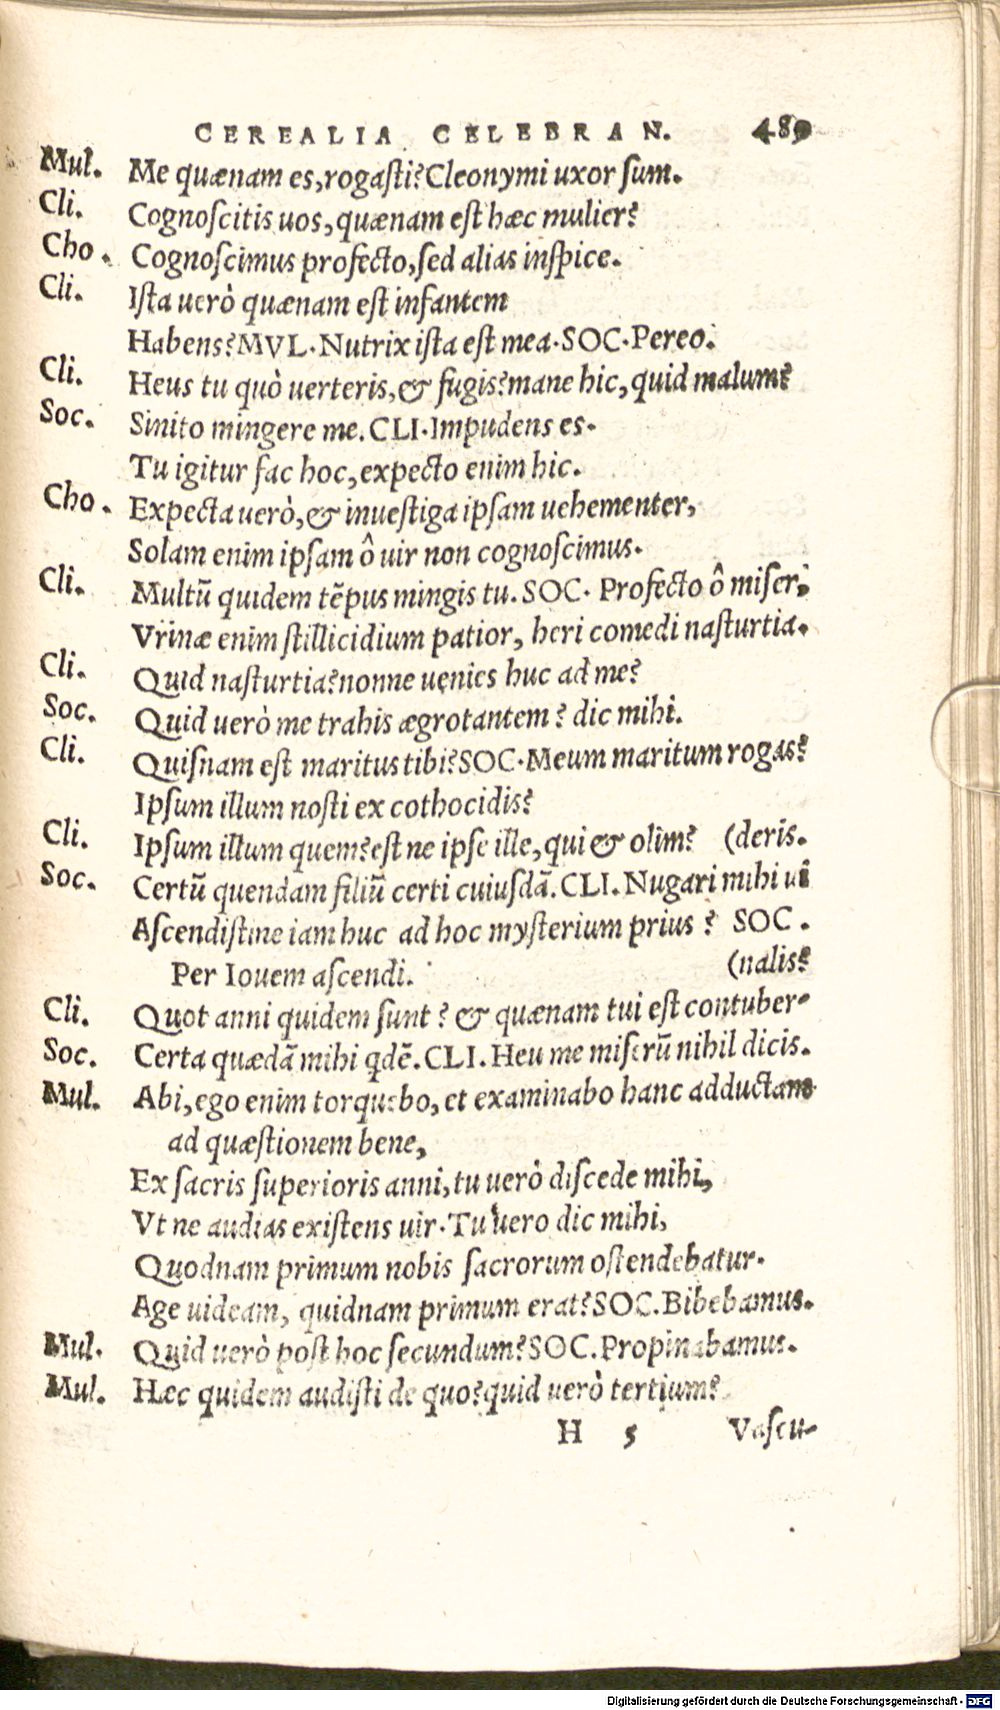 CEREALIA CELEBRAN. 489
Mul. Me quænam es, rogasti? Cleonymi uxor sum.
Cli. Cognoscitis uos, quænam est hæc mulier?
Cho. Cognoscimus profecto, sed alias inspice.
Cli. Ista uerò quænam est infantem
Habens? MVL. Nutrix ista est mea. SOC. Pereo.
Cli. Heus tu quò uerteris, & fugis? mane hic, quid malum?
Soc. Sinito mingere me. CLI. Impudens es.
Tu igitur fac hoc, expecto enim hic.
Cho. Expecta uerò, & inuestiga ipsam uehementer,
Solam enim ipsam ô uir non cognoscimus.
Cli. Multũ quidem tẽpus mingis tu. SOC. Profecto ô miser,
Vrinæ enim stillicidium patior, heri comedi nasturtia.
Cli. Quid nasturtia? nonne uenies huc ad me?
Soc. Quid uerò me trahis ægrotantem? dic mihi.
Cli. Quisnam est maritus tibi? SOC. Meum maritum rogas?
Ipsum illum nosti ex cothocidis?
Cli. Ipsum illum quem? est ne ipse ille, qui & olim? (deris.
Soc. Certũ quendam filiũ certi cuiusdã. CLI. Nugari mihi ui
Ascendistine iam huc ad hoc mysterium prius? SOC.
Per Iouem ascendi. (nalis?
Cli. Quot anni quidem sunt? & quænam tui est contuber-
Soc. Certa quædã mihi qdẽ. CLI. Heu me miserũ nihil dicis.
Mul. Abi, ego enim torquebo, et examinabo hanc adductam
ad quæstionem bene,
Ex sacris superioris anni, tu uerò discede mihi,
Vt ne audias existens uir. Tu uero dic mihi,
Quodnam primum nobis sacrorum ostendebatur.
Age uideam, quidnam primum erat? SOC. Bibebamus.
Mul. Quid uerò post hoc secundum? SOC. Propinabamus.
Mul. Hæc quidem audisti de quo? quid uerò tertium?
H 5 Vascu-
Digitalisierung gefördert durch die Deutsche Forschungsgemeinschaft - DFG